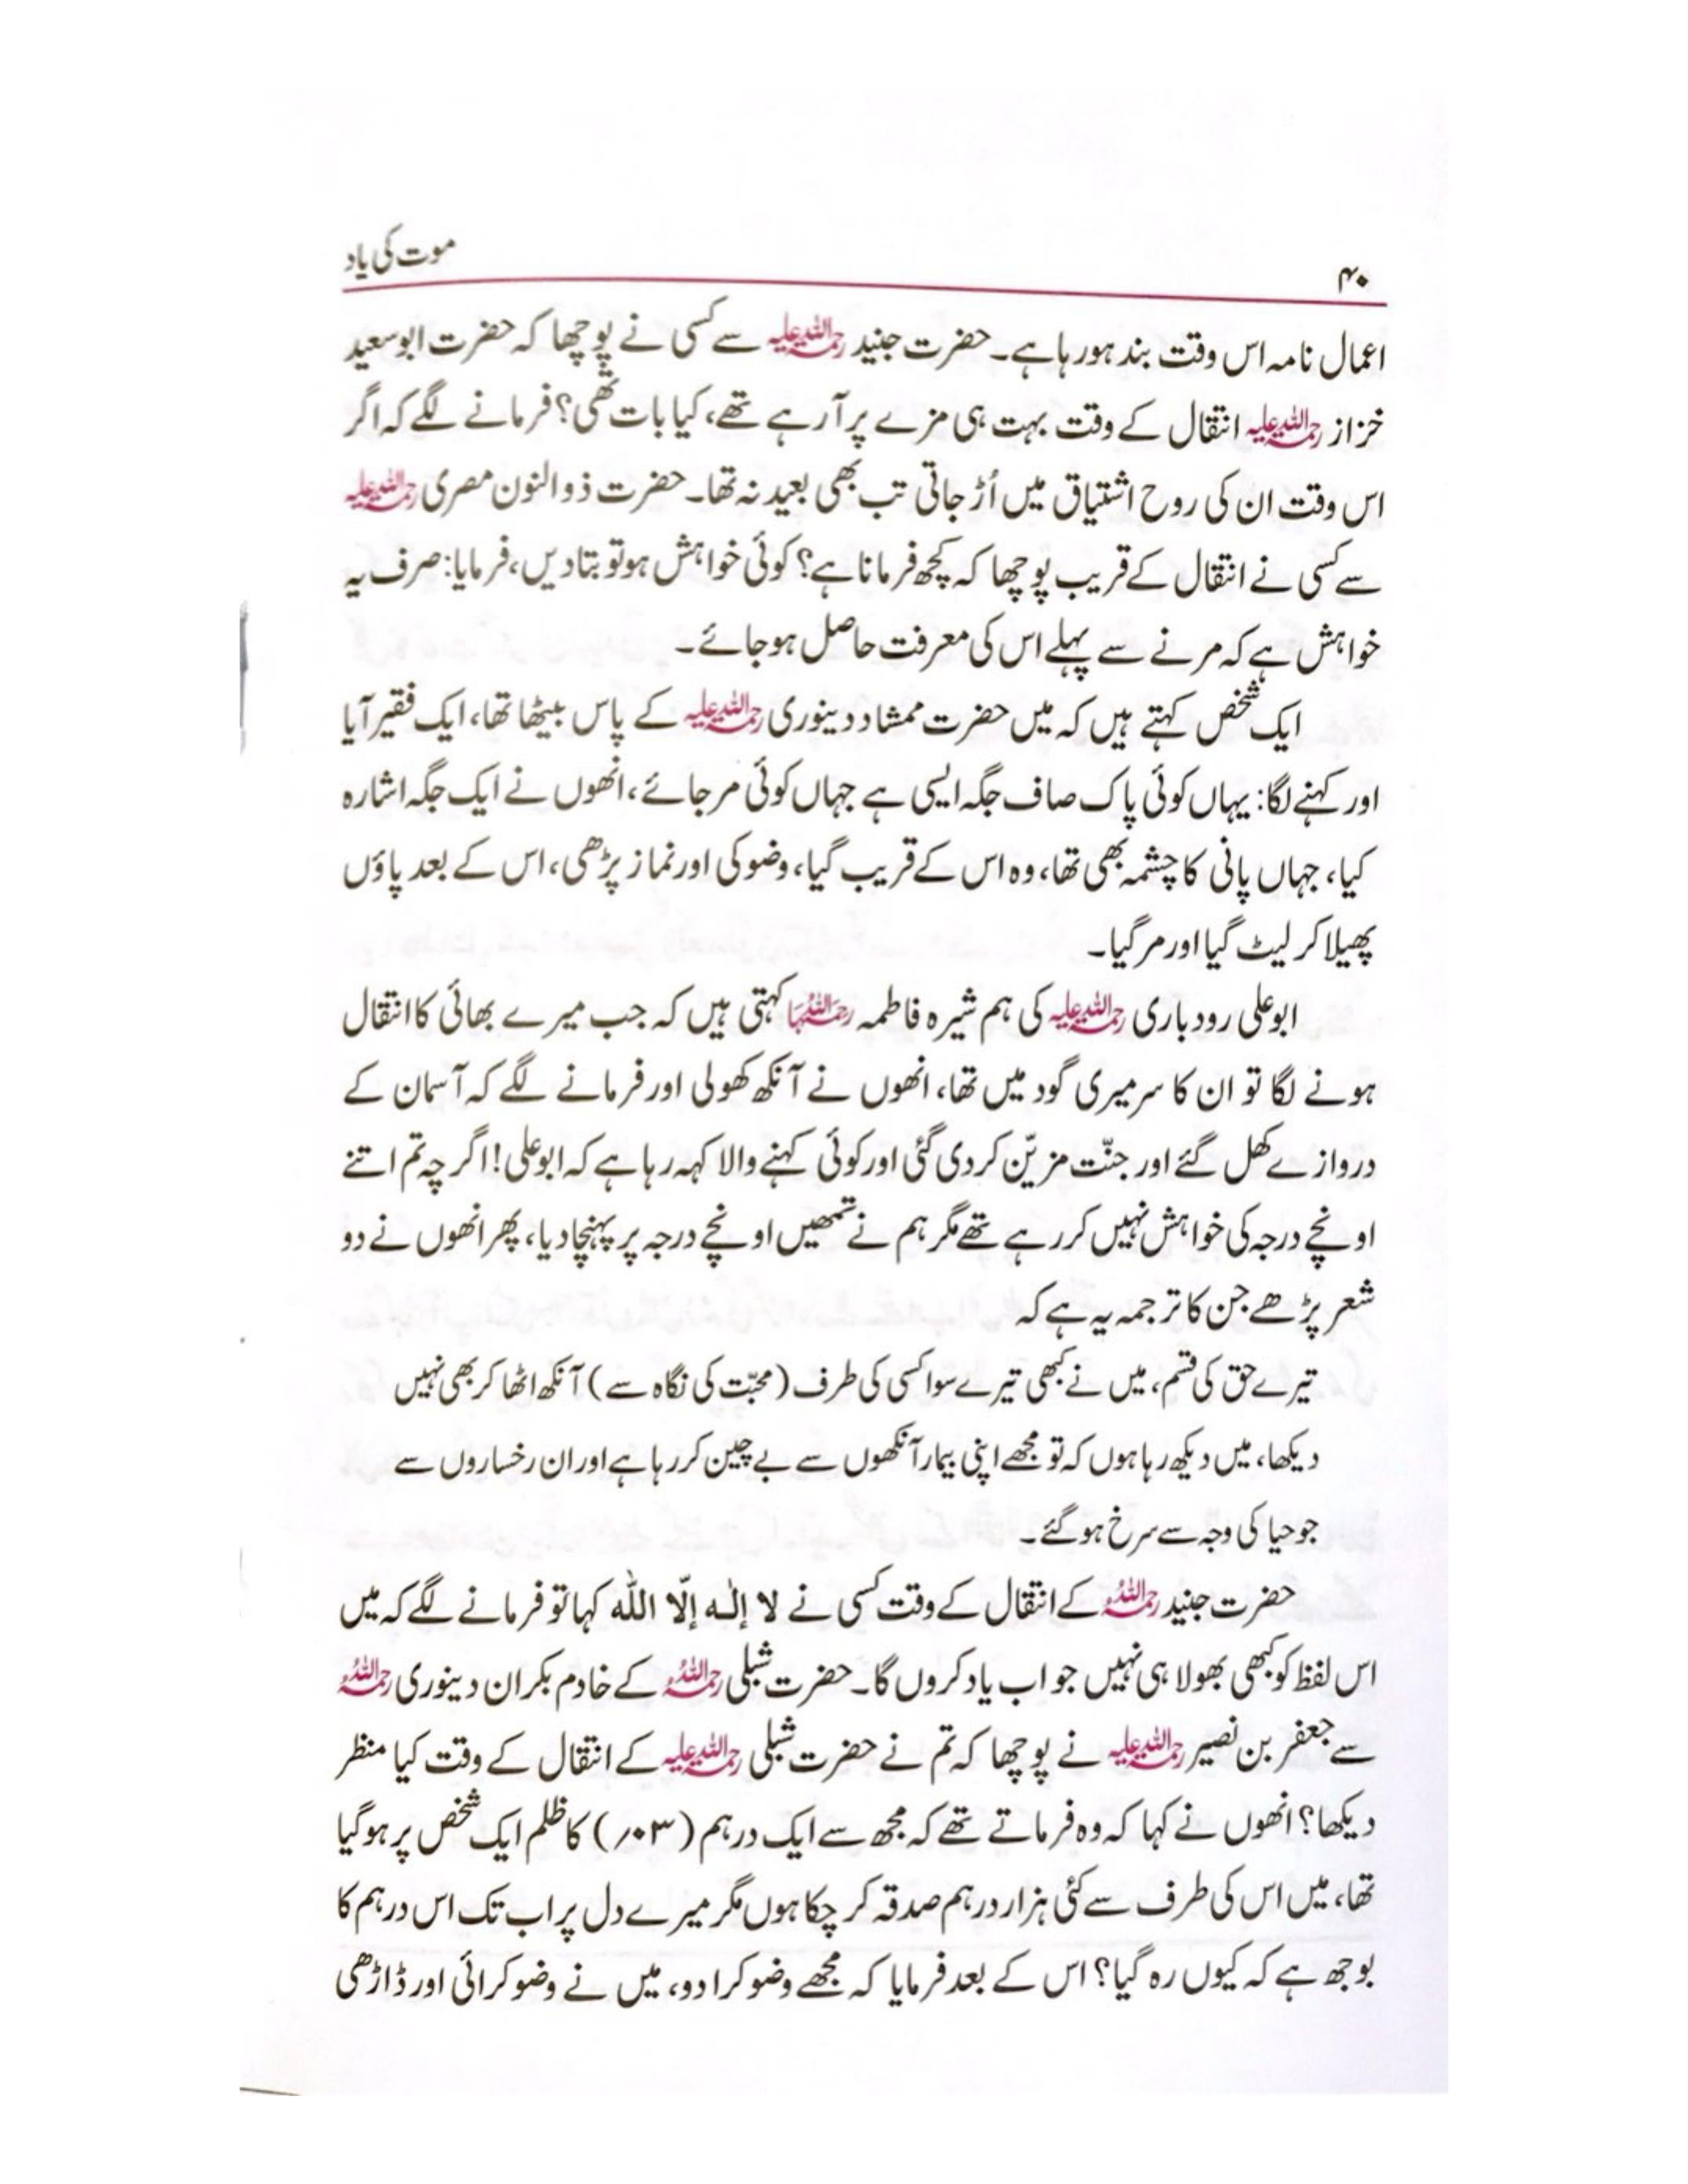 ۴۰ موت کی یاد
اعمال نامہ اس وقت بند ہو رہا ہے۔ حضرت جنید رحمۃ اللہ علیہ سے کسی نے پوچھا کہ حضرت ابوسعید
خزاز رحمۃ اللہ علیہ انتقال کے وقت بہت ہی مزے پر آرہے تھے، کیا بات تھی؟ فرمانے لگے کہ اگر
اس وقت ان کی روح اشتیاق میں اُڑ جاتی تب بھی بعید نہ تھا۔ حضرت ذوالنون مصری رحمۃ اللہ علیہ
سے کسی نے انتقال کے قریب پوچھا کہ کچھ فرمانا ہے؟ کوئی خواہش ہو تو بتادیں، فرمایا: صرف یہ
خواہش ہے کہ مرنے سے پہلے اس کی معرفت حاصل ہو جائے۔
ایک شخص کہتے ہیں کہ میں حضرت ممشاد دینوری رحمۃ اللہ علیہ کے پاس بیٹھا تھا، ایک فقیر آیا
اور کہنے لگا: یہاں کوئی پاک صاف جگہ ایسی ہے جہاں کوئی مر جائے، انھوں نے ایک جگہ اشارہ
کیا، جہاں پانی کا چشمہ بھی تھا، وہ اس کے قریب گیا، وضو کی اور نماز پڑھی، اس کے بعد پاؤں
پھیلا کر لیٹ گیا اور مر گیا۔
ابوعلی رودباری رحمۃ اللہ علیہ کی ہم شیرہ فاطمہ رحمۃ اللہ علیہا کہتی ہیں کہ جب میرے بھائی کا انتقال
ہونے لگا تو ان کا سر میری گود میں تھا، انھوں نے آنکھ کھولی اور فرمانے لگے کہ آسمان کے
دروازے کھل گئے اور جنّت مزیّن کردی گئی اور کوئی کہنے والا کہہ رہا ہے کہ ابوعلی! اگرچہ تم اتنے
اونچے درجہ کی خواہش نہیں کررہے تھے مگر ہم نے تمھیں اونچے درجہ پر پہنچا دیا، پھر انھوں نے دو
شعر پڑھے جن کا ترجمہ یہ ہے کہ
تیرے حق کی قسم، میں نے کبھی تیرے سوا کسی کی طرف (محبّت کی نگاہ سے) آنکھ اٹھا کر بھی نہیں
دیکھا، میں دیکھ رہا ہوں کہ تو مجھے اپنی بیمار آنکھوں سے بے چین کررہا ہے اور ان رخساروں سے
جو حیا کی وجہ سے سرخ ہو گئے۔
حضرت جنید رحمہ اللہ کے انتقال کے وقت کسی نے لا إلٰه إلّا اللّٰه کہا تو فرمانے لگے کہ میں
اس لفظ کو کبھی بھولا ہی نہیں جو اب یاد کروں گا۔ حضرت شبلی رحمہ اللہ کے خادم بکران دینوری رحمہ اللہ
سے جعفر بن نصیر رحمۃ اللہ علیہ نے پوچھا کہ تم نے حضرت شبلی رحمۃ اللہ علیہ کے انتقال کے وقت کیا منظر
دیکھا؟ انھوں نے کہا کہ وہ فرماتے تھے کہ مجھ سے ایک درہم ( ) کا ظلم ایک شخص پر ہو گیا
تھا، میں اس کی طرف سے کئی ہزار درہم صدقہ کر چکا ہوں مگر میرے دل پر اب تک اس درہم کا
بوجھ ہے کہ کیوں رہ گیا؟ اس کے بعد فرمایا کہ مجھے وضو کرا دو، میں نے وضو کرائی اور ڈاڑھی